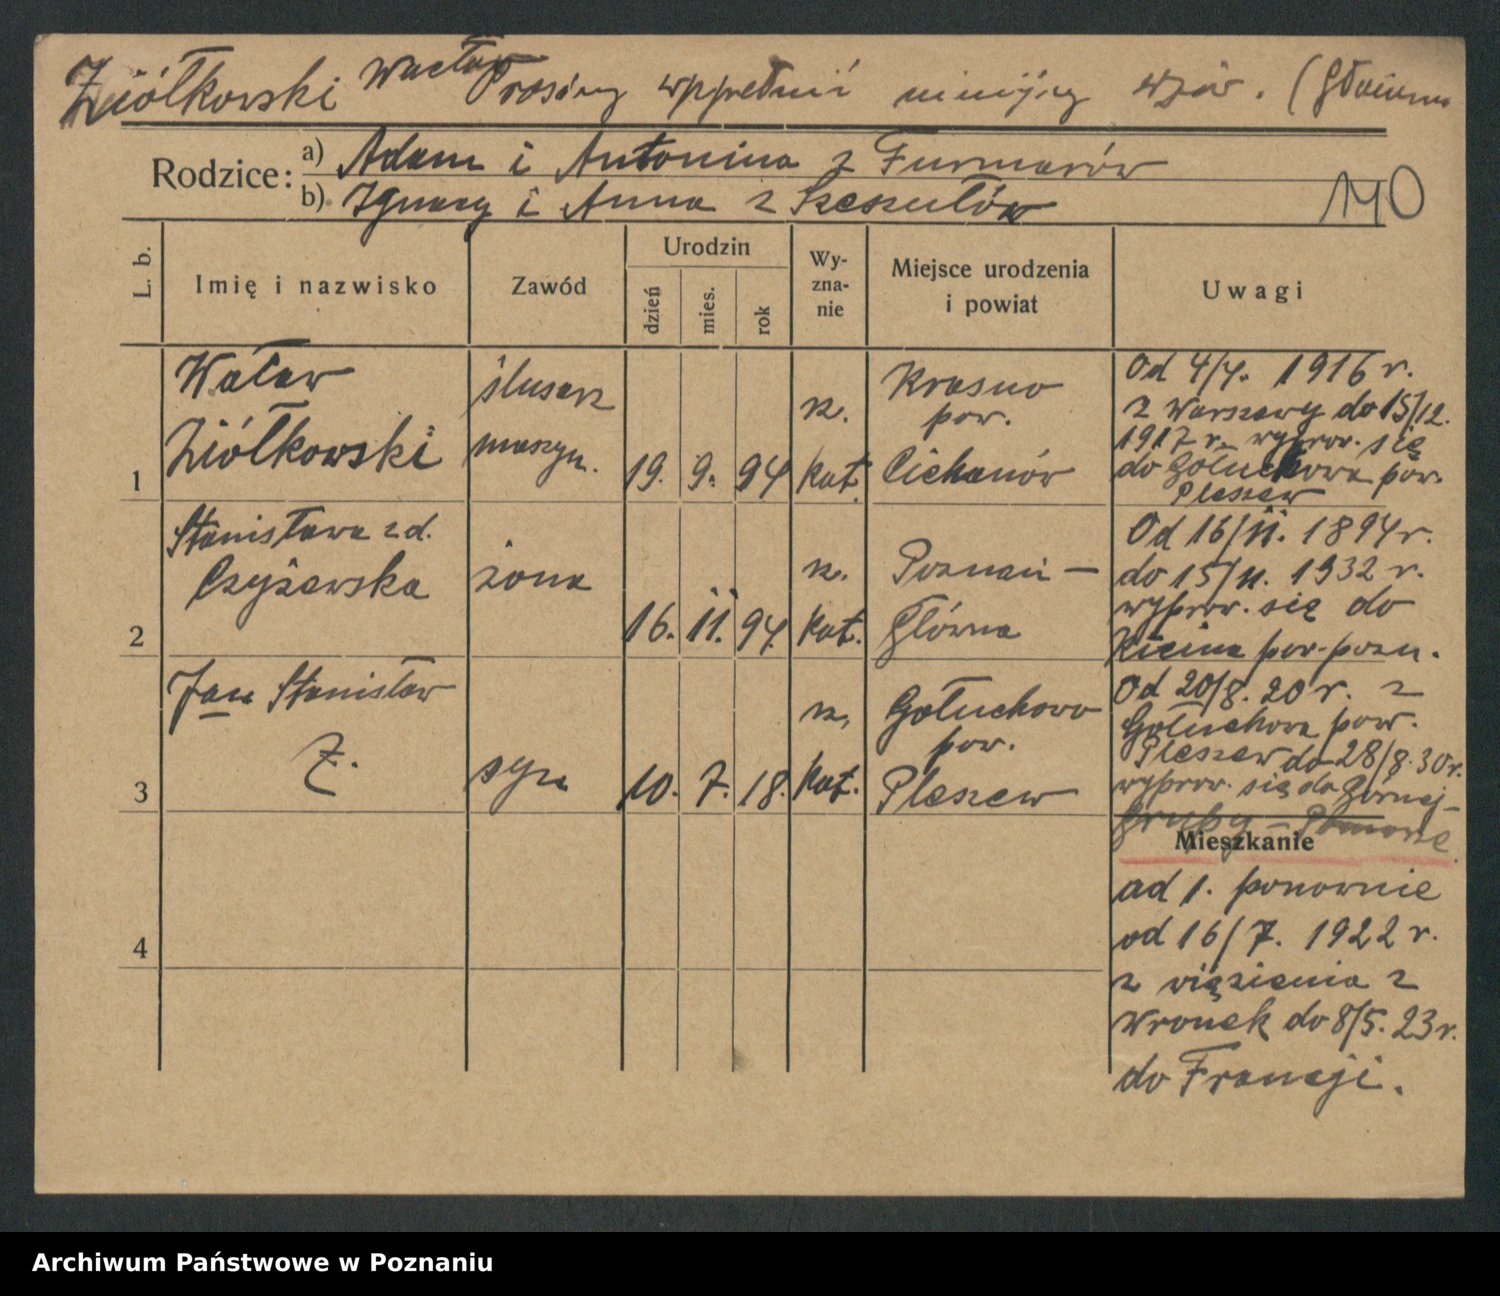 Ziółkowski Wacław Prosimy wypełnić niniejszy wzór. (Główna
Rodzice:
a) Adam i Antonina z Furmarów
b) Ignacy i Anna z Szeszułów
140
L. b.
Imię i nazwisko
Zawód
Urodzin
dzień
mies.
rok
Wy-
zna-
nie
Miejsce urodzenia
i powiat
Uwagi
1
Wacław
Ziółkowski
ślusarz
maszyn.
19. 9. 94
rz.
kat.
Krasno
pow.
Ciechanów
Od 4/4. 1916 r.
z Warszawy do 15/12.
1917 r. wyprow. się
do Gołuchowa pow.
Pleszew
2
Stanisława z d.
Czyżewska
żona
16. 11. 94
rz.
kat.
Poznań —
Główna
Od 16/11. 1894 r.
do 15/11. 1932 r.
wyprow. się do
Kicina pow. pozn.
3
Jan Stanisław
Z.
syn
10. 7. 18.
rz.
kat.
Gołuchowo
pow.
Pleszew
Od 20/8. 20 r. z
Gołuchowa pow.
Pleszew do 28/8. 30 r.
wyprow. się do Górnej-
Grupy – Pomorze
Mieszkanie
4
ad 1. ponownie
od 16/7. 1922 r.
z więzienia z
Wronek do 8/5. 23 r.
do Francji.
Archiwum Państwowe w Poznaniu